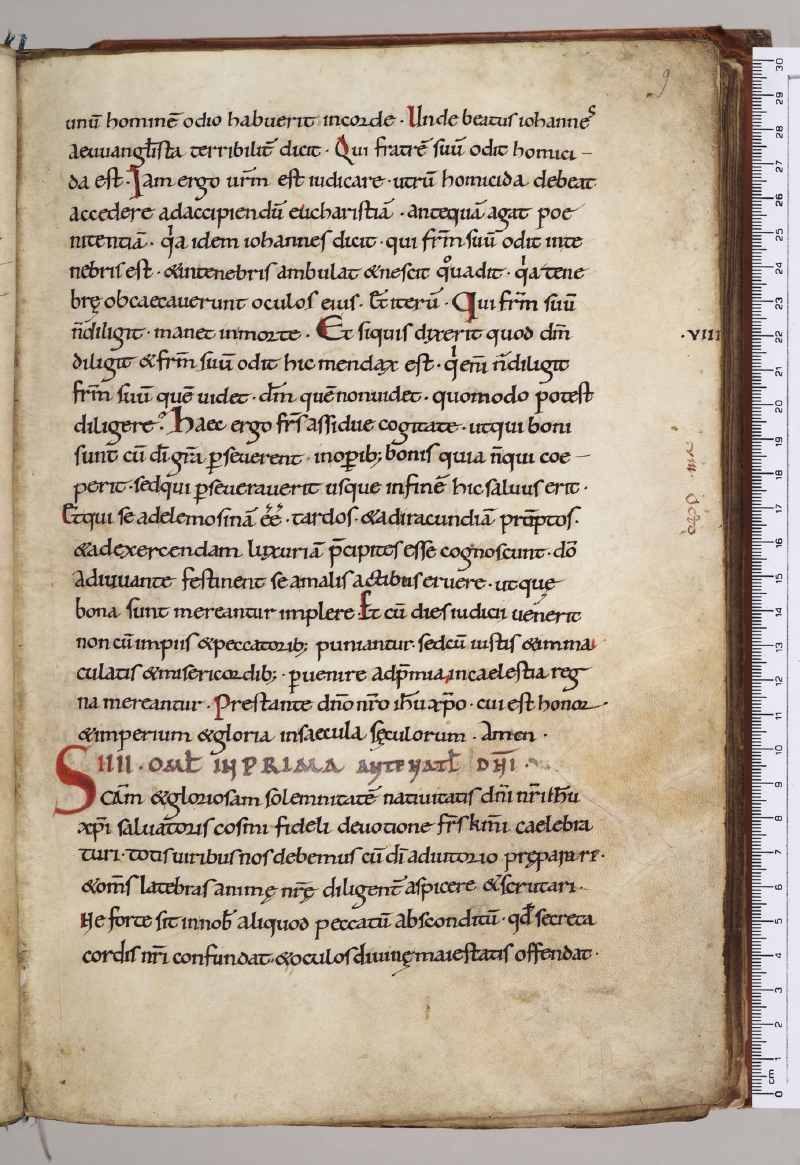 9
unū hominē odio habuerit incorde · Unde beatus iohanneˢ
aeuuangłista terribilit̄ dicit · Qui fratrē suū odit homici –
da est · Iam ergo ur̄m est iudicare · utrū homicida debeat
accedere adaccipiendū eucharistiā · antequā agat poe
nitentiā · qͥa idem iohannes dicit · qui fr̄m suū odit inte
nebris est · &intenebris ambulat &nescit qͦuadit · qͥa tene
bręobcaecauerunt oculos eius · Et iterū · Qui fr̄m suū
n̄diligit · manet inmorte · Et siquis dixerit quod dm̄
·VIII
diligit &fr̄m suū odit hic mendax est · qͥ enī n̄diligit
fr̄m suū quē uidet · dm̄ quēnonuidet · quomodo potest
diligere? Haec ergo fr̄s assidue cogitate · utqui boni
sunt cū dī gr̄a ꝑseuerent · inoꝑib; bonis quia n̄qui coe –
perit · sedqui ꝑseuerauerit usque infinē hicsaluus erit ·
Etqui se adelemosinā éé · tardos · &adiracundiā prūptos ·
&adexercendam luxuriā p̄cipites esse cognoscunt · dō
adiuuante festinent se amalis actibus eruere · utquę
bona sunt mereantur implere · Et cū dies iudicii uenerit
non cū impiis &peccatorib; puniantur · sedcū iustis &imma
culatis &misericordib; · ꝑuenire adp̄mia incaelestia reg
na mereantur · Prestante dn̄o nr̄o ih̄u xp̄o · cui est honor ·
&imperium &gloria insaecula sęculorum · Amen ·
IIII · OMŁ IN PRIMA ANTE NATŁ DN̄I ·
Scām &gloriosam solemnitatē natiuitatis dn̄i nr̄i ih̄u
xp̄i saluatoris cosmi fideli deuotione fr̄s km̄i caelebra
turi · totis uiribus nos debemus cū dī adiutorio pręparare ·
&om̄s latebras animę nr̄ę diligent̄ aspicere &scrutari ·
Ne forte sit innob̄ aliquod peccatū absconditū · qd̄ secreta
cordis nr̄i confundat · &oculos diuinę maiestatis offendat ·